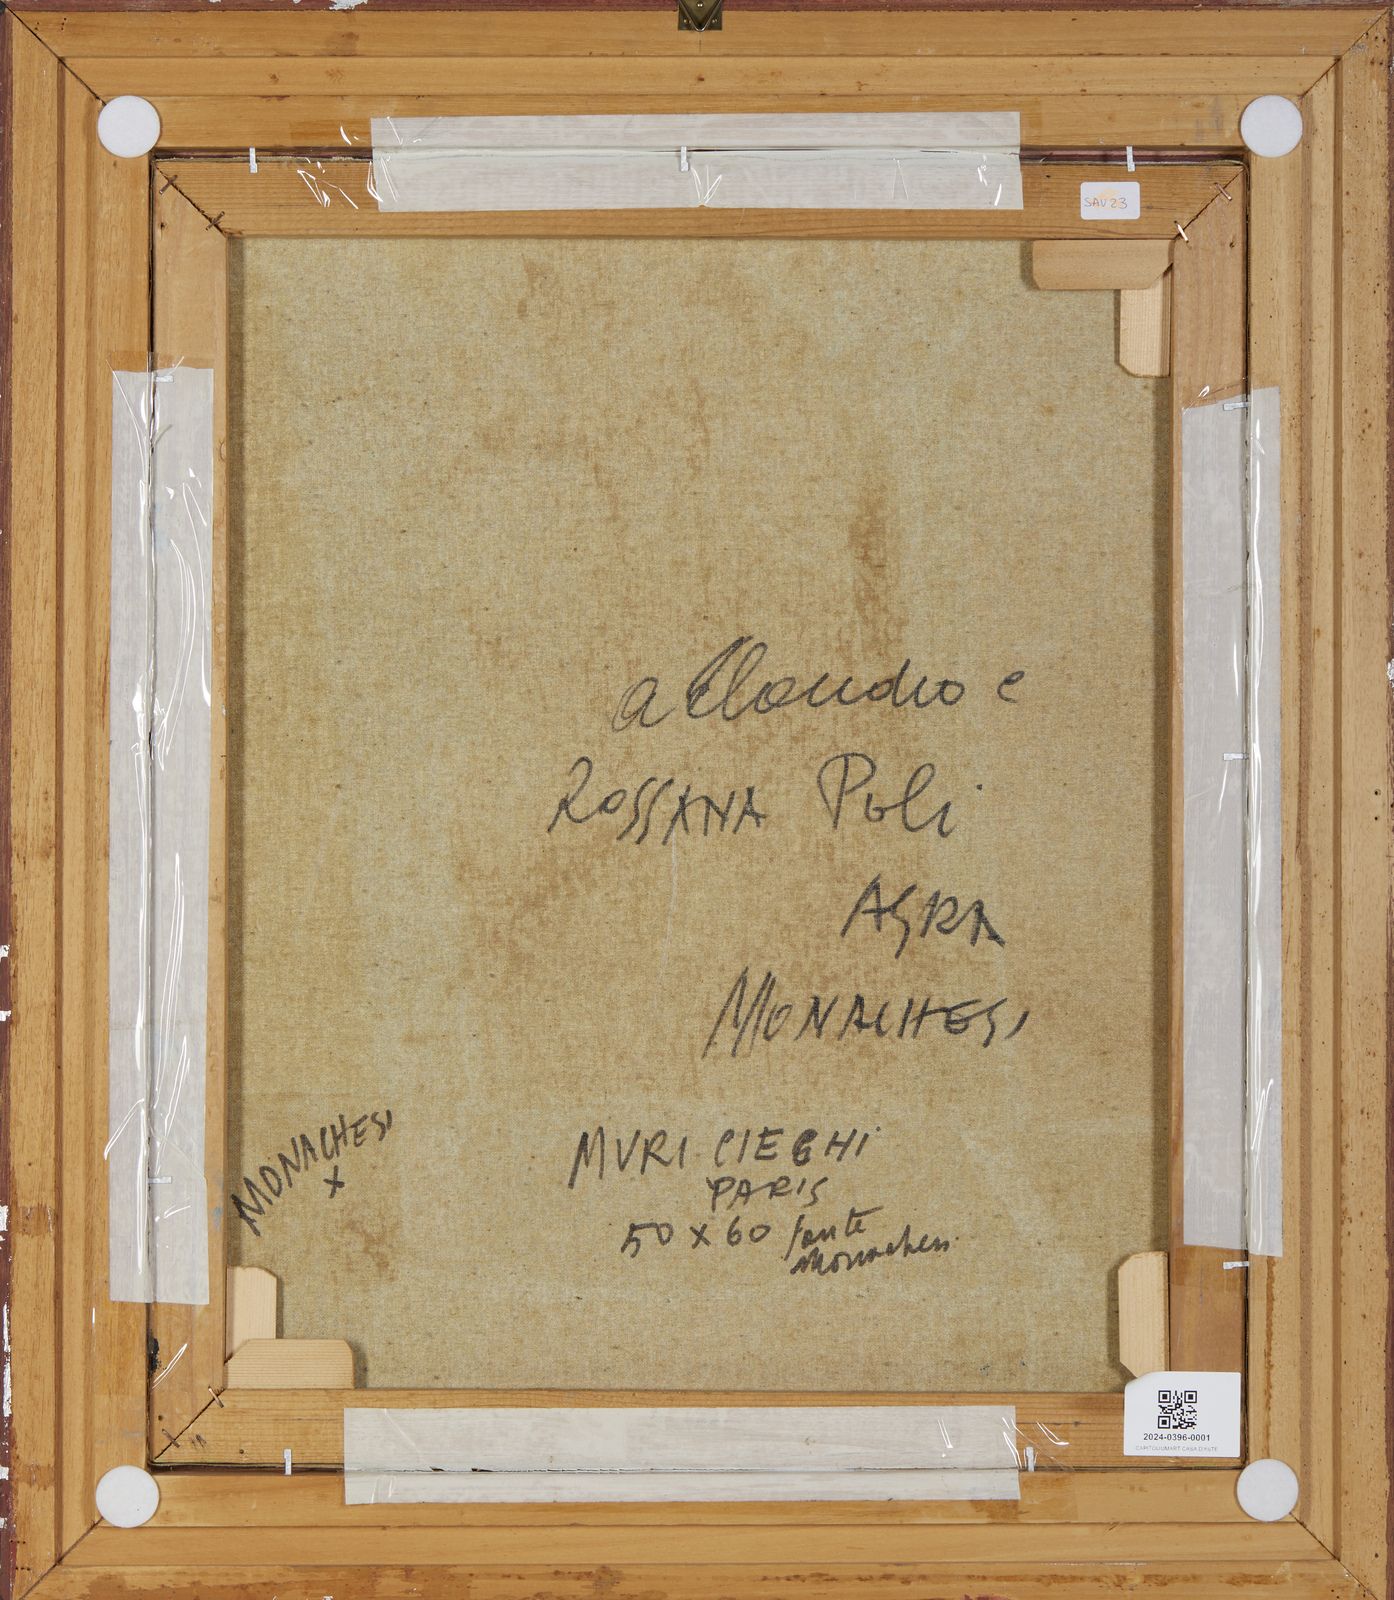 SAV23
a Claudio e
ROSSANA Poli
AGRA
MONACHESI
MONACHESI
x
MURI CIECHI
PARIS
50 x 60 fante
Monachesi
2024-0396-0001
CAPITOLIUMART CASA D'ASTE